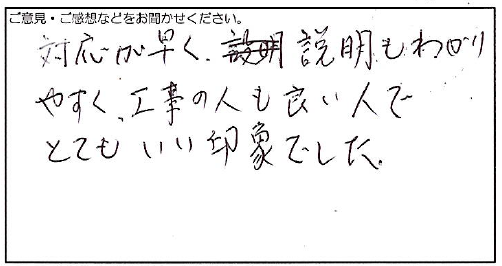 ご意見・ご感想などをお聞かせください。
対応が早く、説明もわかり
やすく、工事の人も良い人で
とてもいい印象でした。